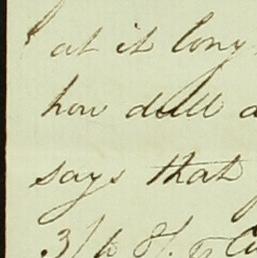 at it long
how dull a
says that
3/6